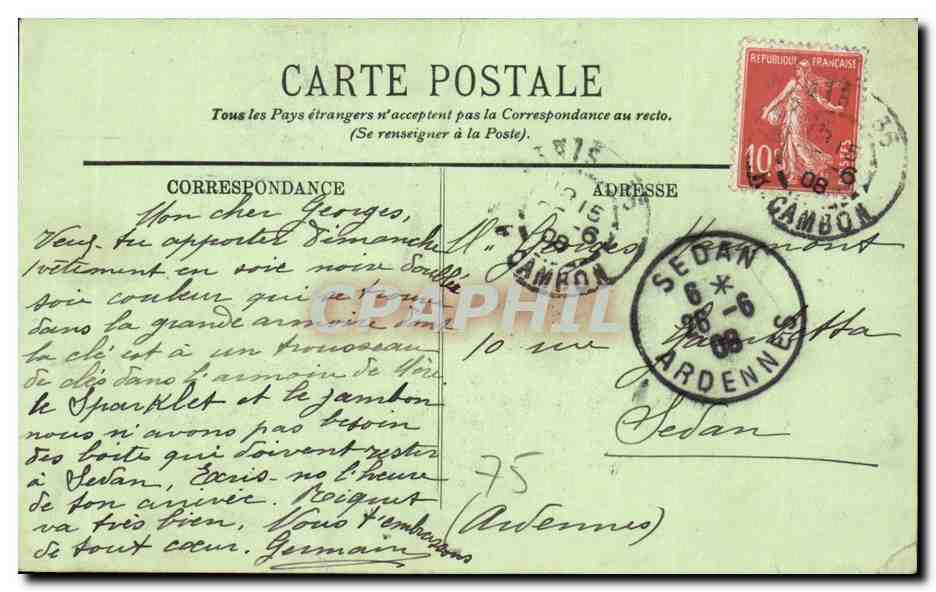 CARTE POSTALE
Tous les Pays étrangers n'acceptent pas la Correspondance au recto.
(Se renseigner à la Poste).
CORRESPONDANCE
Mon cher Georges,
Veux-tu apporter Dimanche
1 vêtement en soie noire doublé
soie couleur qui se trouve
dans la grande armoire dont
la clé est à un trousseau
de clés dans l'armoire de Mère
le Sparklet et le jambon
nous n'avons pas besoin
des boites qui doivent rester
à Sedan. Ecris-ns l'heure
de ton arrivée. Riquet
va très bien. Nous t'embrassons
de tout cœur. Germain
ADRESSE
Mr Georges
10 rue Gambetta
Sedan
(Ardennes)
75
REPUBLIQUE FRANÇAISE
10c
PARIS 35
15
6
08
R. CAMBON
PARIS 35
15
-6
08
R. CAMBON
SEDAN
6 *
26 -6
08
ARDENNES
CPAPHIL